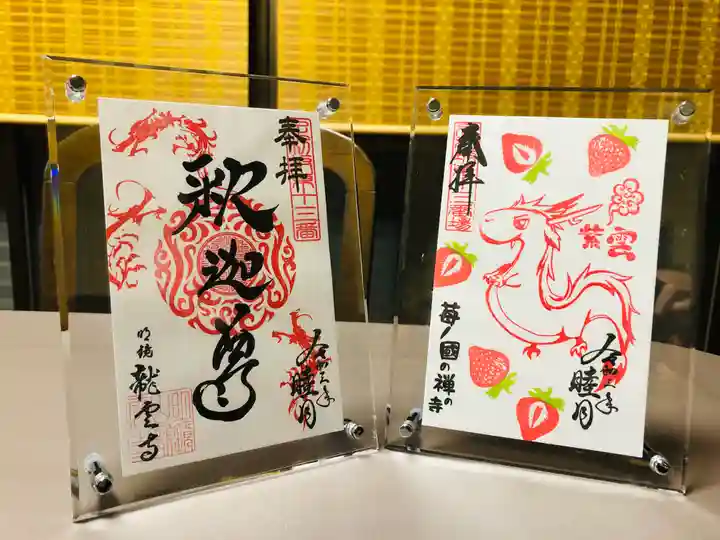 奉拝
釈迦尊
令和六年
睦月
明鏡
龍雲寺
奉拝
紫雲
令和六年
睦月
苺ノ國の禅の寺